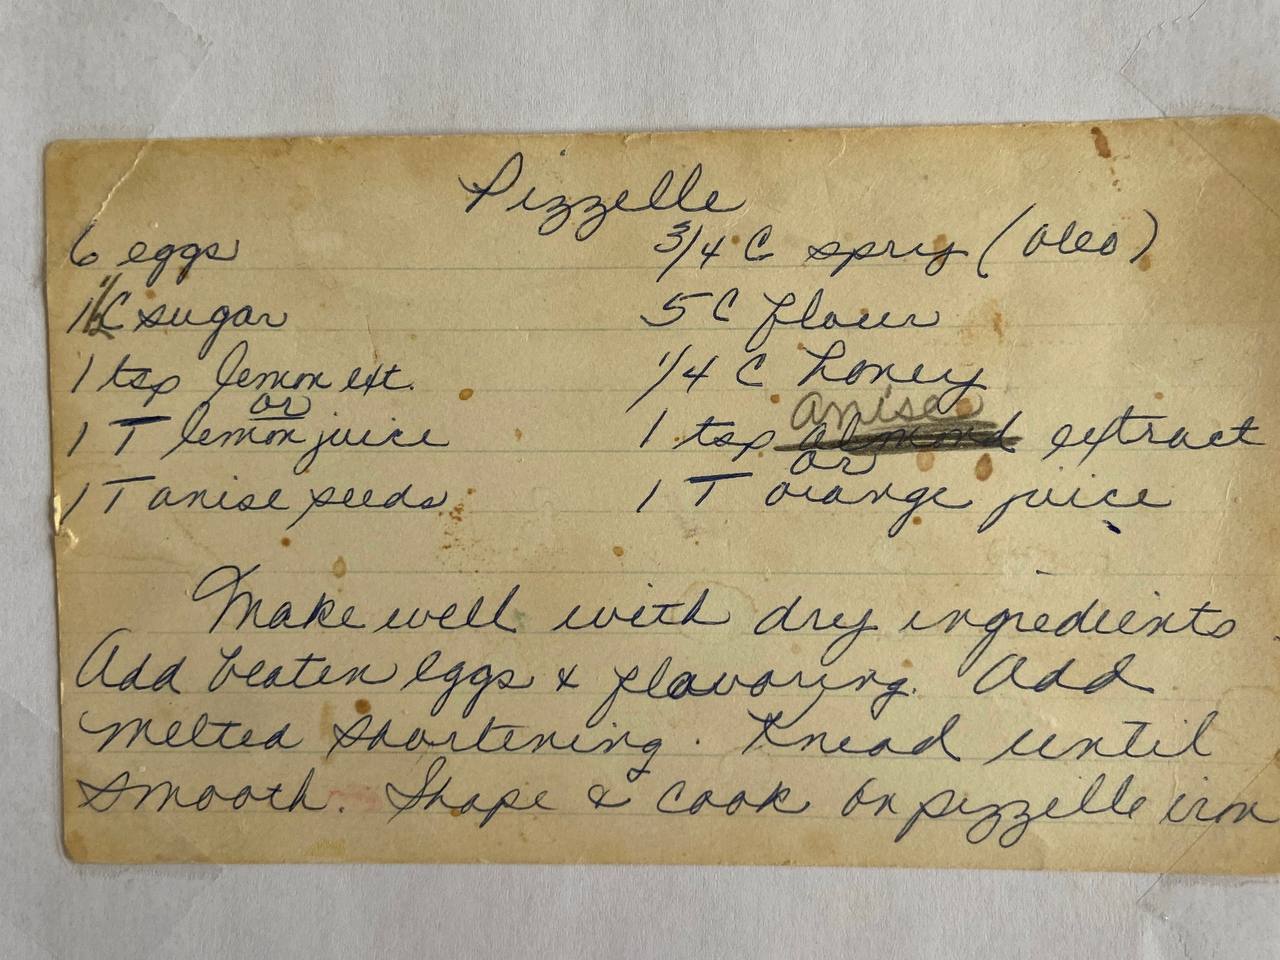 Pizzelle
6 eggs
1 1/2 C sugar
1 tsp lemon ext.
or
1 T lemon juice
1 T anise seeds
3/4 C spry (oleo)
5 C flour
1/4 C honey
anise
1 tsp almond extract
or
1 T orange juice
Make well with dry ingredients.
Add beaten eggs & flavoring. Add
melted shortening. Knead until
smooth. Shape & cook on pizzelle iron